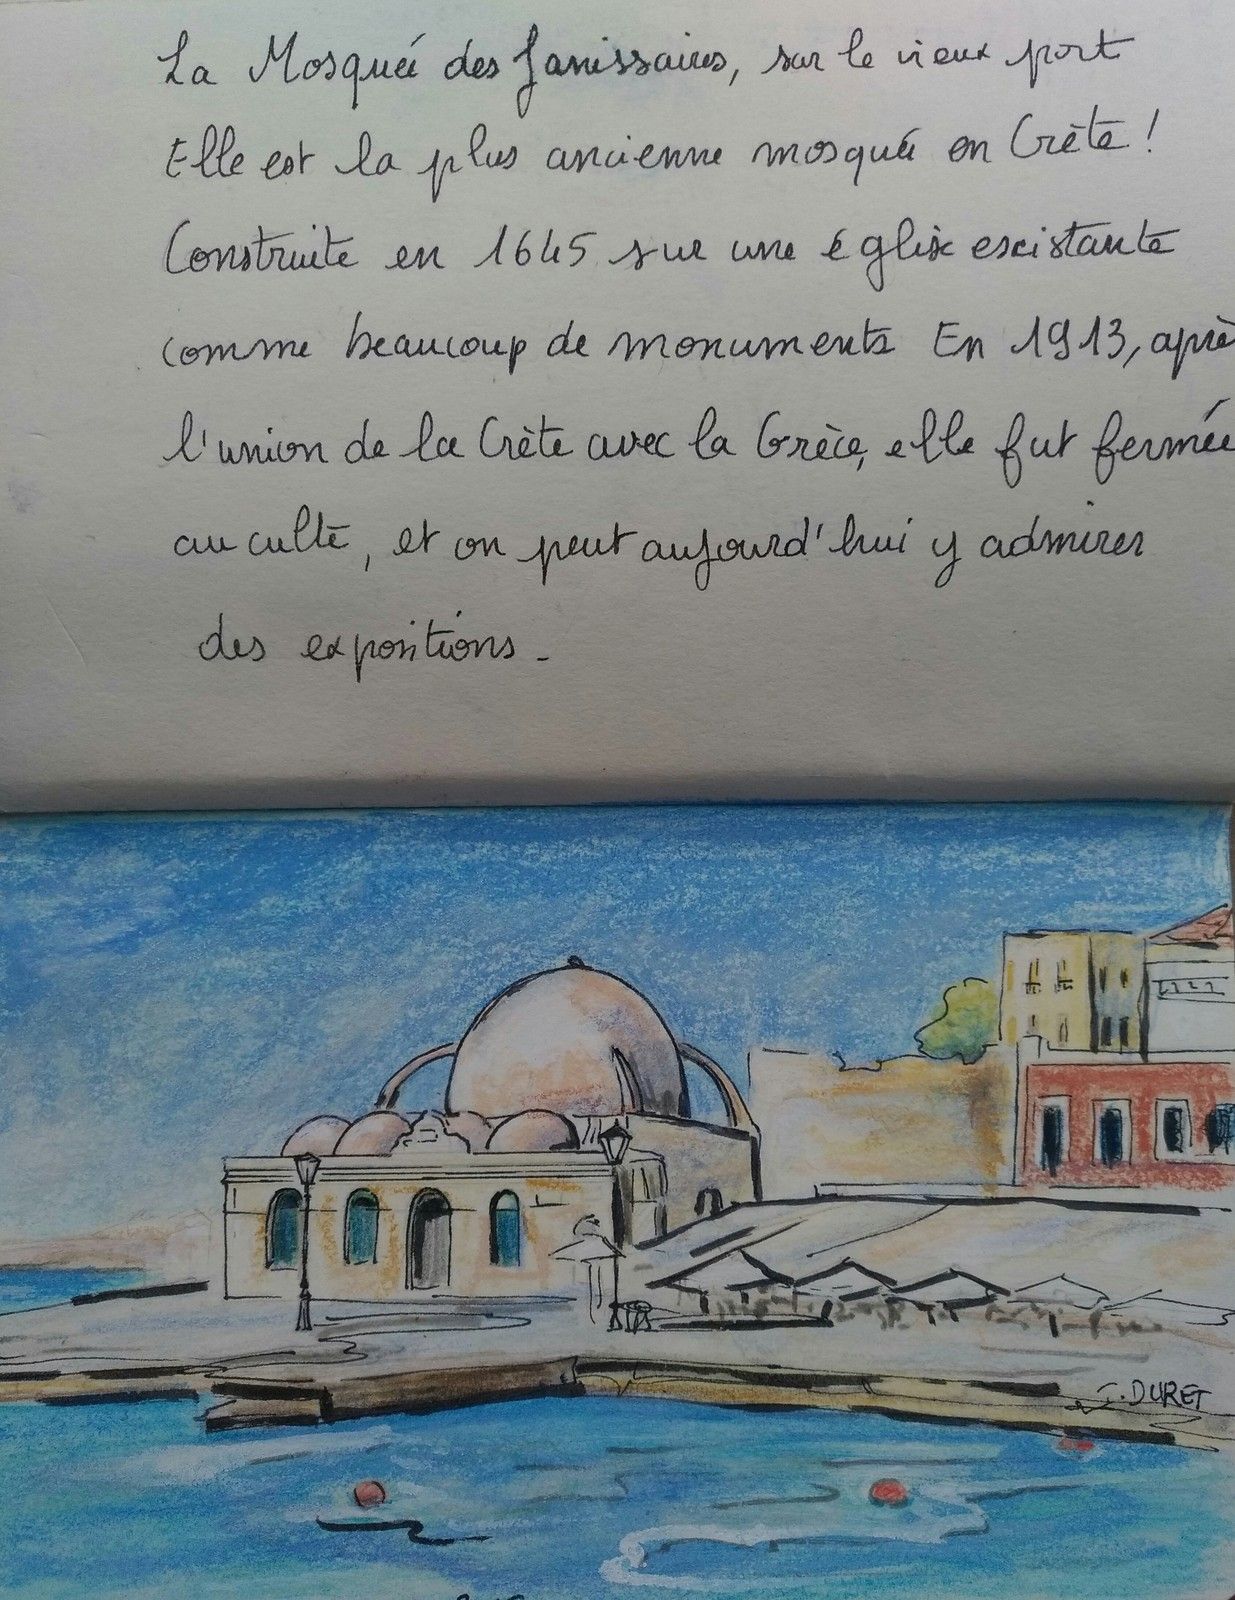 La Mosquée des Janissaires, sur le vieux port
Elle est la plus ancienne mosquée en Crète !
Construite en 1645 sur une église existante
comme beaucoup de monuments En 1913, aprè
l'union de la Crète avec la Grèce, elle fut fermée
au culte, et on peut aujourd'hui y admirer
des expositions -
I. DURET